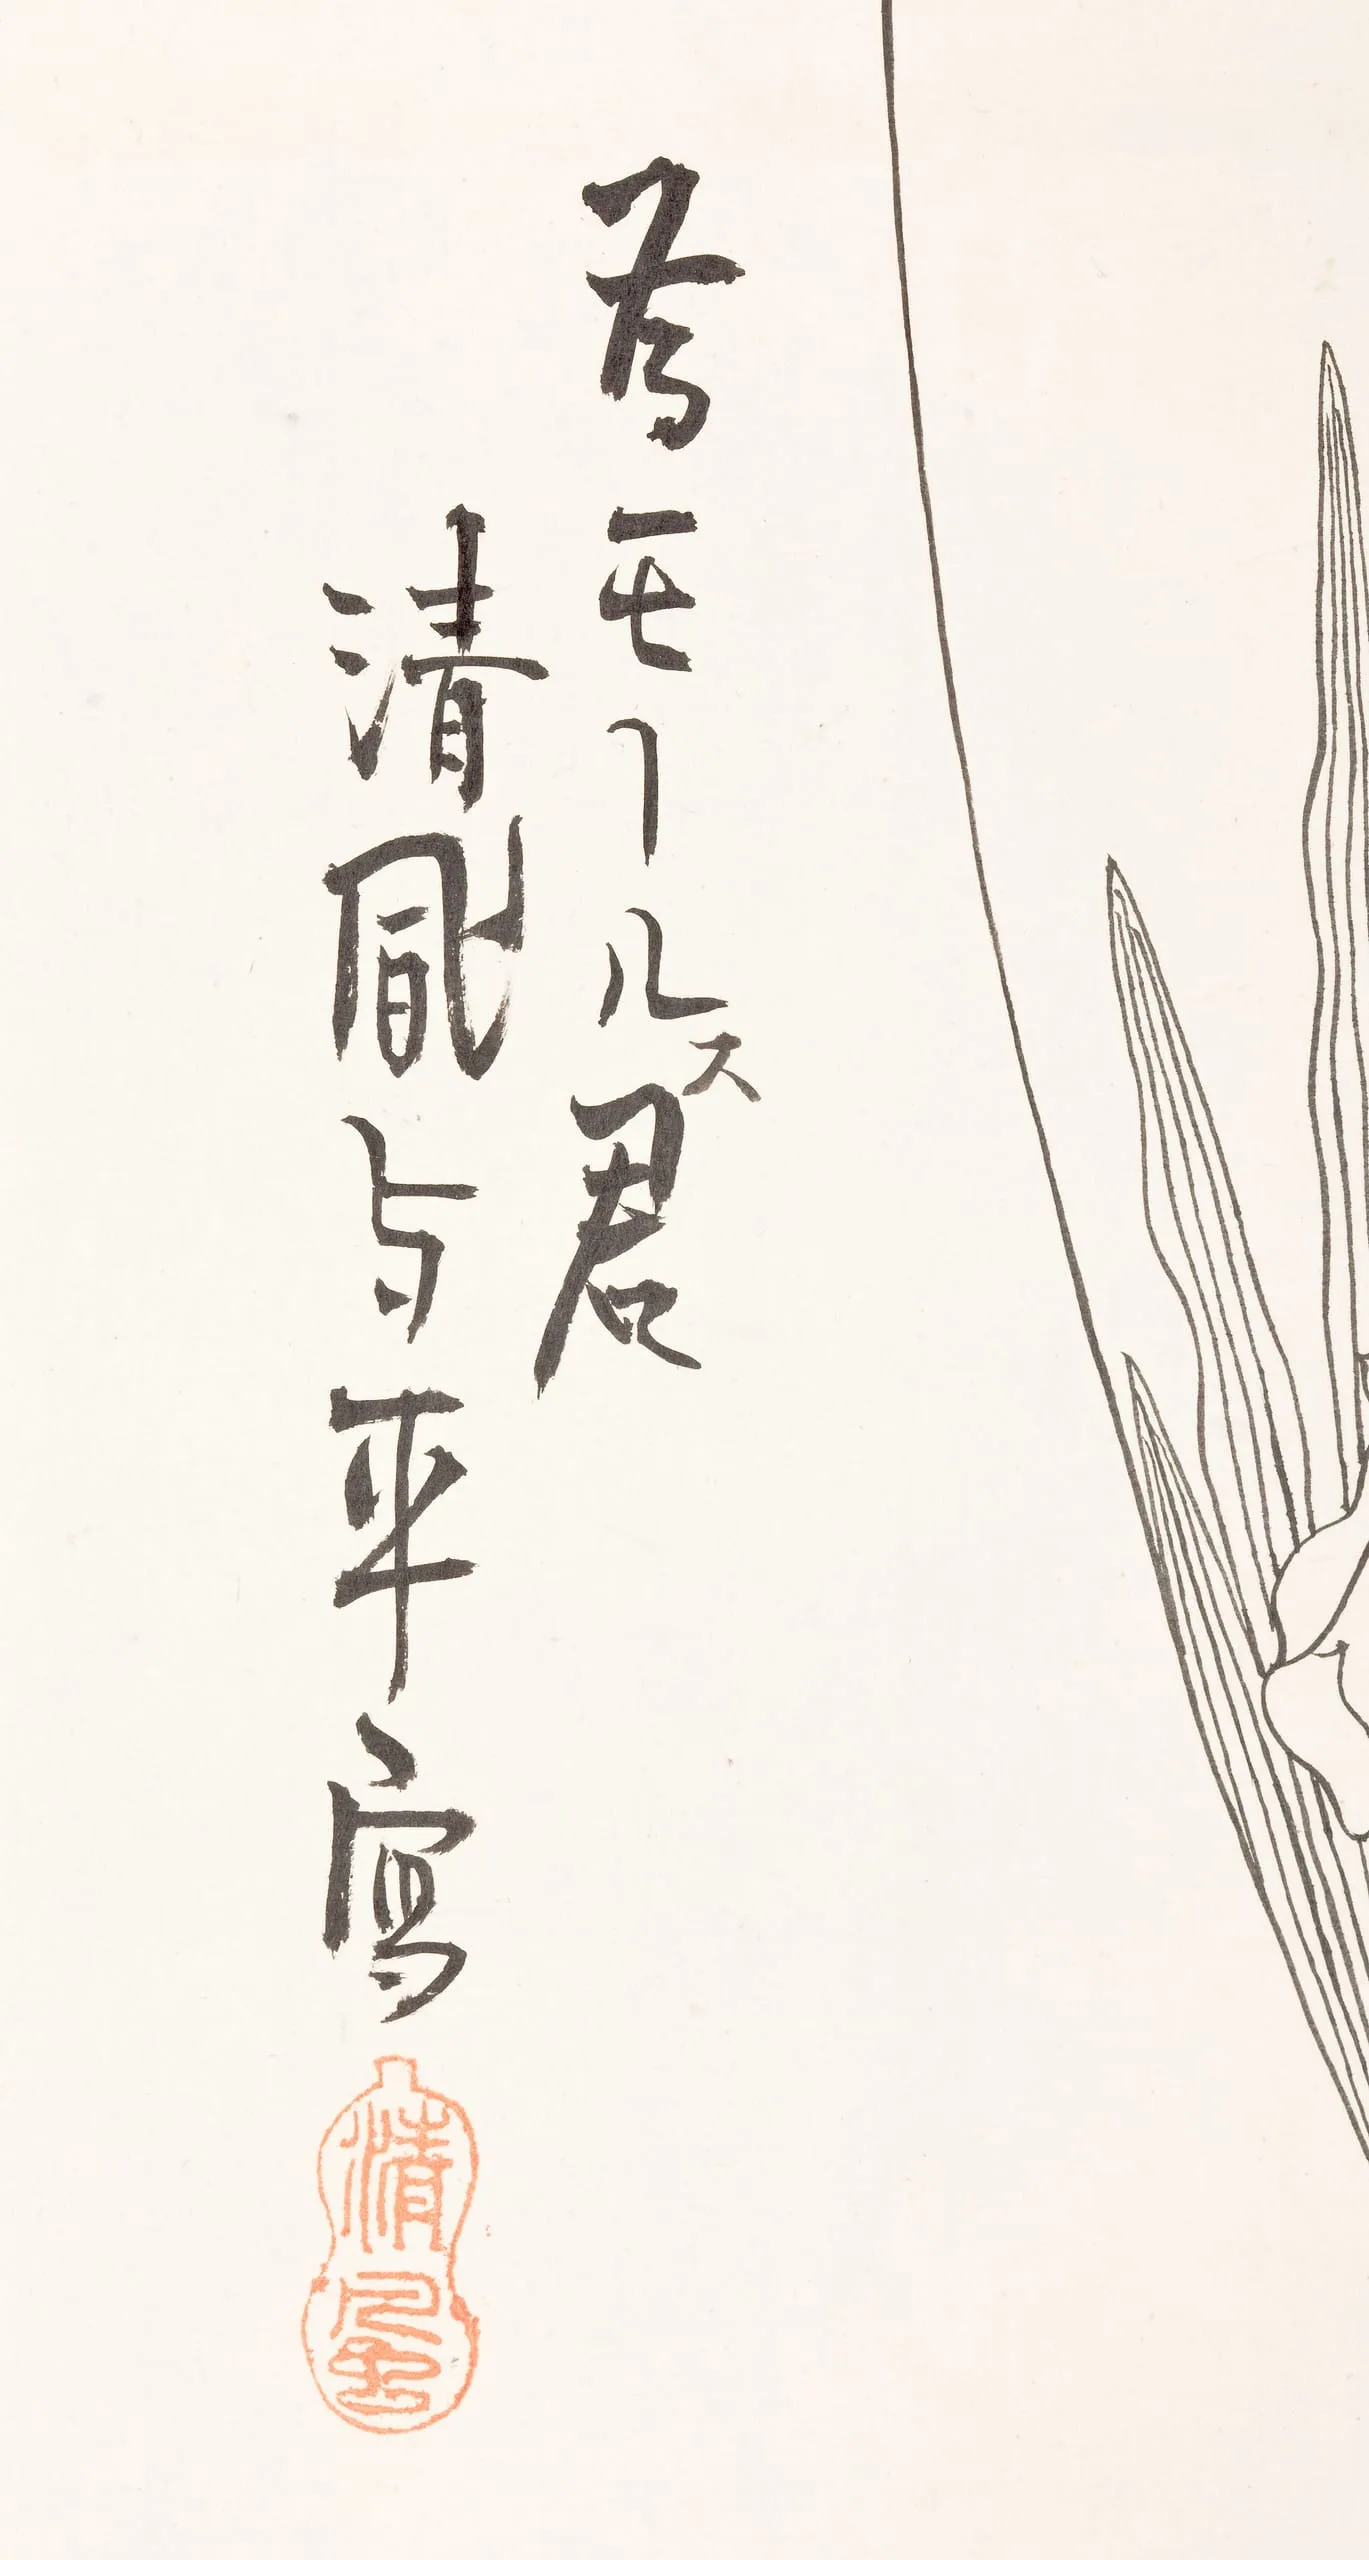 為モールス君
清風与平寫
清風